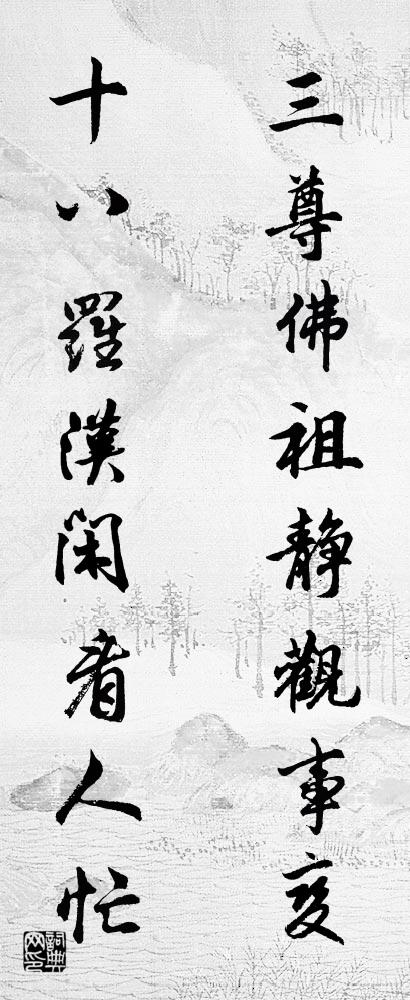 三尊佛祖靜觀事变
十八羅漢闲看人忙
詞典网印